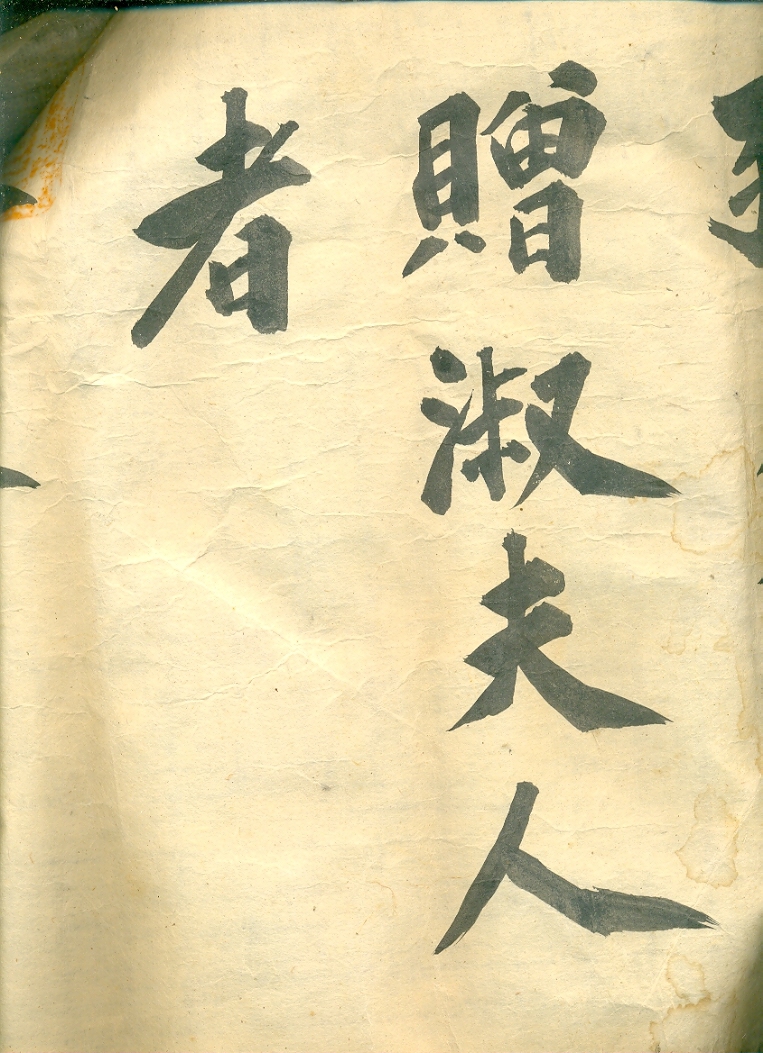 贈淑夫人
者